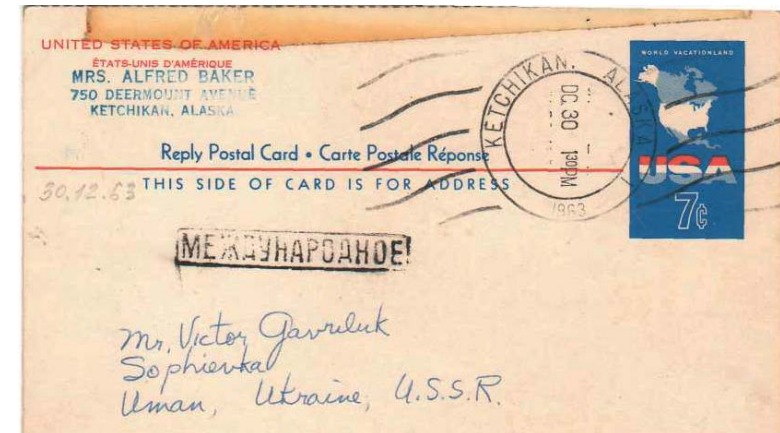 UNITED STATES OF AMERICA
ÉTATS-UNIS D'AMÉRIQUE
MRS. ALFRED BAKER
750 DEERMOUNT AVENUE
KETCHIKAN, ALASKA
Reply Postal Card • Carte Postale Réponse
THIS SIDE OF CARD IS FOR ADDRESS
30.12.63
KETCHIKAN, ALASKA 1
DC 30
130PM
1963
WORLD VACATIONLAND
USA
7¢
МЕЖДУНАРОДНОЕ!
Mr. Victor Gavriluk
Sophievka
Uman, Ukraine, U.S.S.R.